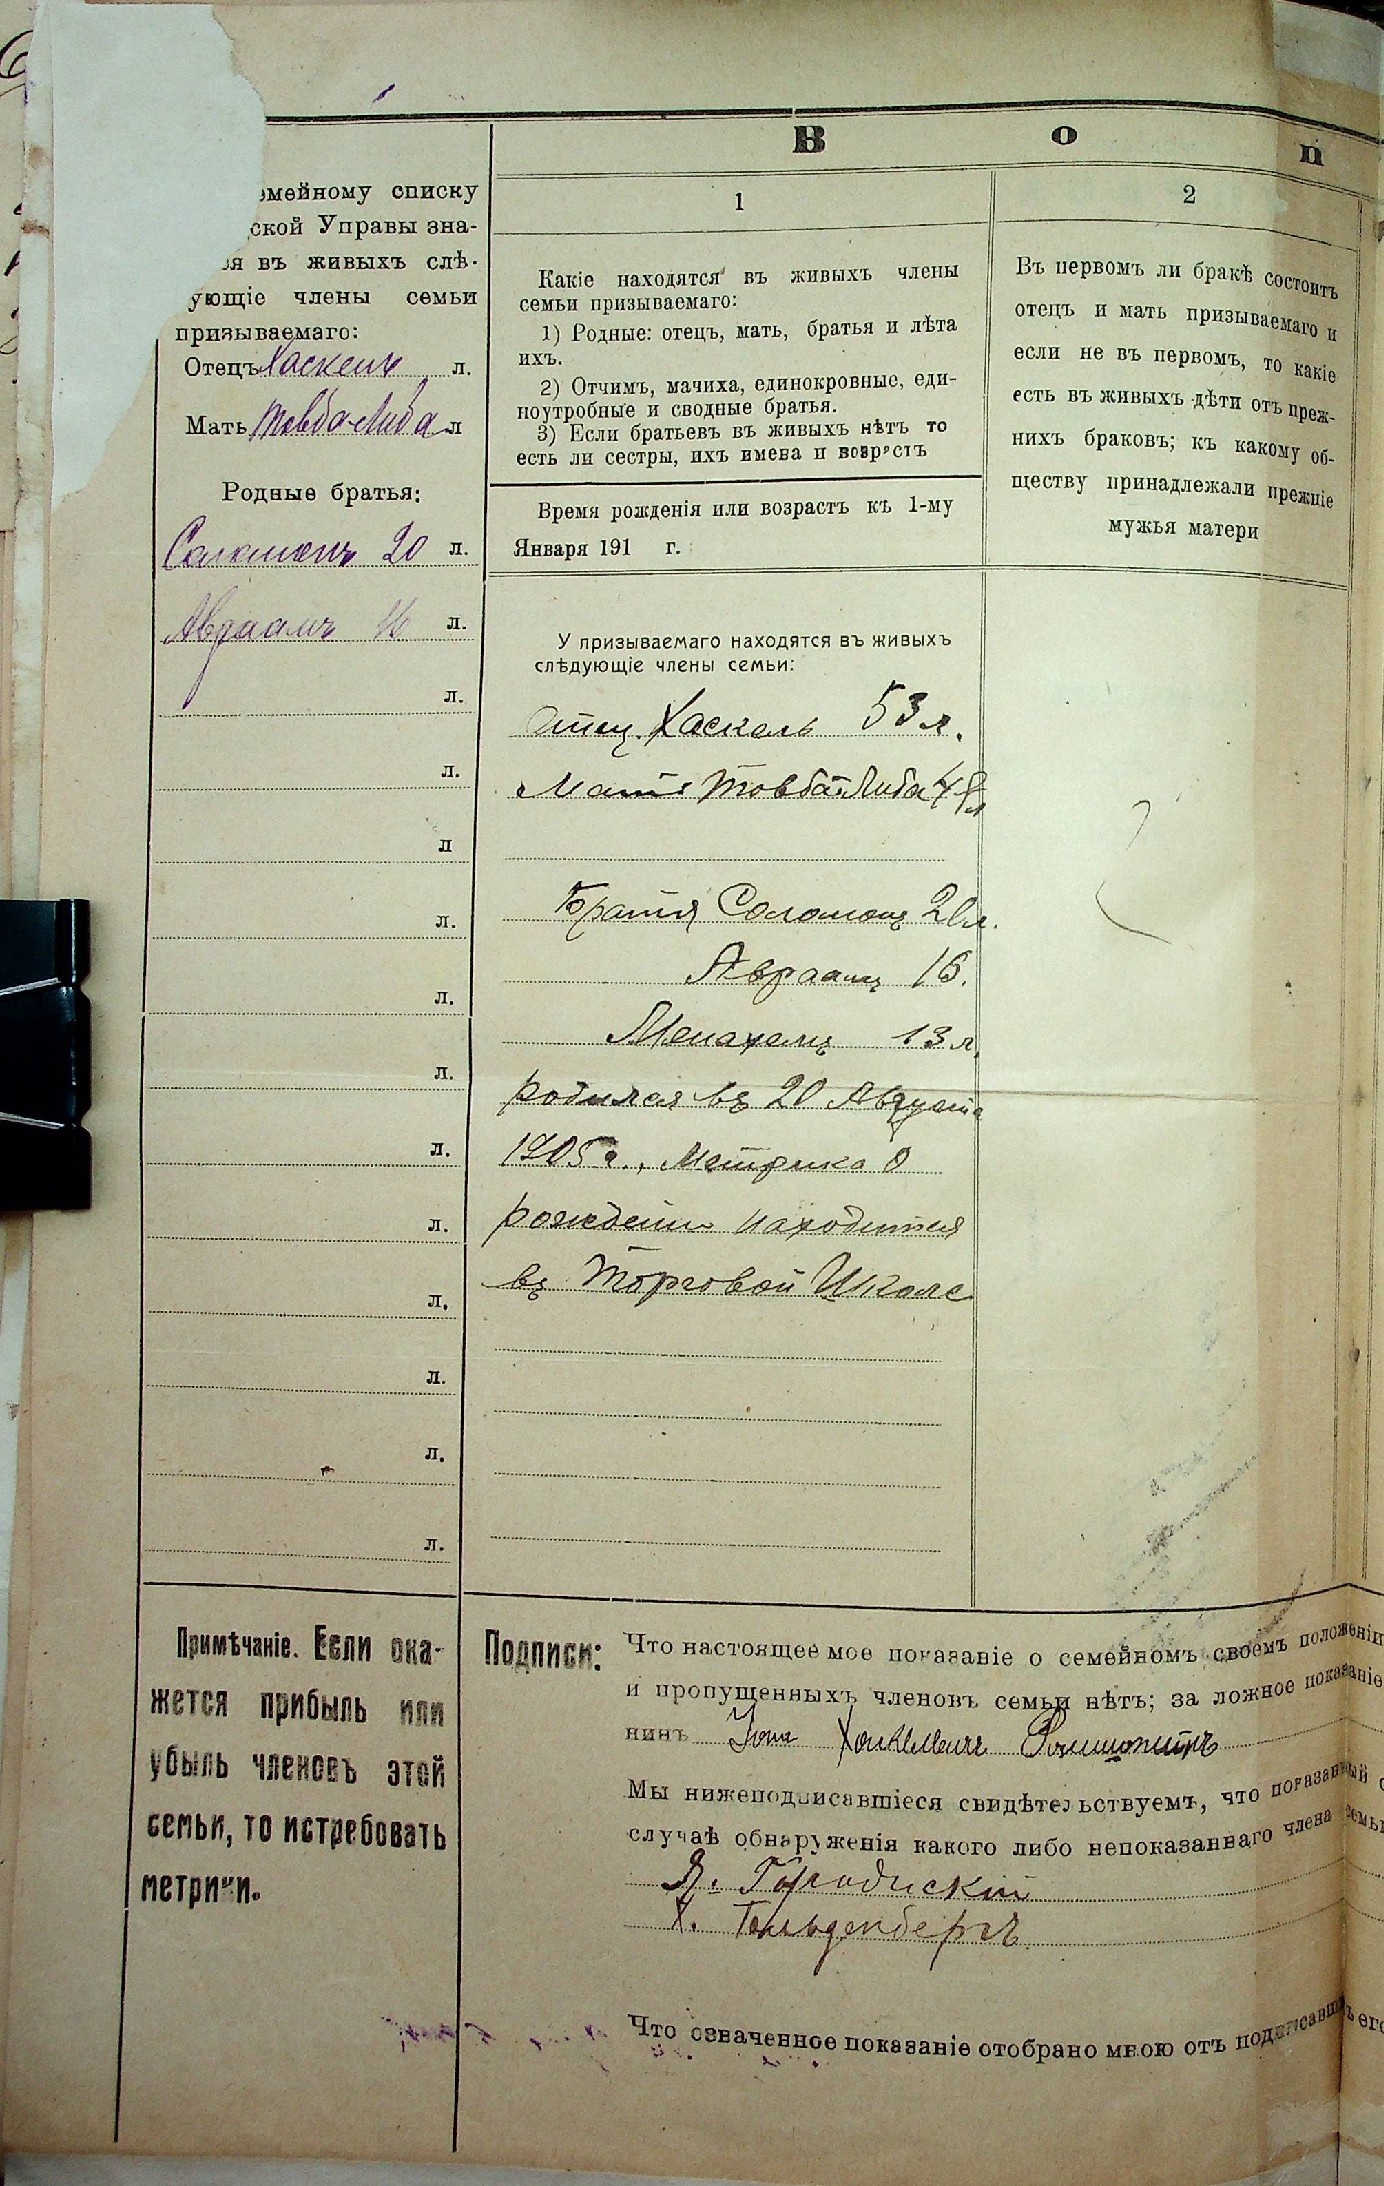 В о п
емейному списку
ской Управы зна-
ся въ живыхъ слѣ-
ующіе члены семьи
призываемаго:
Отецъ Хаскель л.
Мать Товба-Либа л
Родные братья:
Соломонъ 20 л.
Авраамъ 16 л.
л.
л.
л
л.
л.
л.
л.
л.
л.
л.
л.
л.
1
Какіе находятся въ живыхъ члены
семьи призываемаго:
1) Родные: отецъ, мать, братья и лѣта
ихъ.
2) Отчимъ, мачиха, единокровные, еди-
ноутробные и сводные братья.
3) Если братьевъ въ живыхъ нѣтъ то
есть ли сестры, ихъ имена и возрастъ
Время рожденія или возрастъ къ 1-му
Января 191 г.
У призываемаго находятся въ живыхъ
слѣдующіе члены семьи:
отец. Хаскель 53 л.
Мать Товба-Либа 48 л
Братья Соломонъ 20 л.
Авраамъ 16.
Менахемъ 13 л.
родился въ 20 Августа
1905 г., Метрика о
рожденіи находится
въ Торговой Школе
2
Въ первомъ ли бракѣ состоитъ
отецъ и мать призываемаго и
если не въ первомъ, то какіе
есть въ живыхъ дѣти отъ преж-
нихъ браковъ; къ какому об-
ществу принадлежали прежніе
мужья матери
Примѣчаніе. Если ока-
жется прибыль или
убыль членовъ этой
семьи, то истребовать
метрики.
Подписи: Что настоящее мое показаніе о семейномъ своемъ положеніи
и пропущенныхъ членовъ семьи нѣтъ; за ложное показаніе
нинъ Іона Хаскелевичъ
Мы нижеподписавшіеся свидѣтельствуемъ, что показанный с
случаѣ обнаруженія какого либо непоказаннаго члена семьи
Я. Городискій
Х. Гольденбергъ
Что означенное показаніе отобрано мною отъ подписавшихъ его